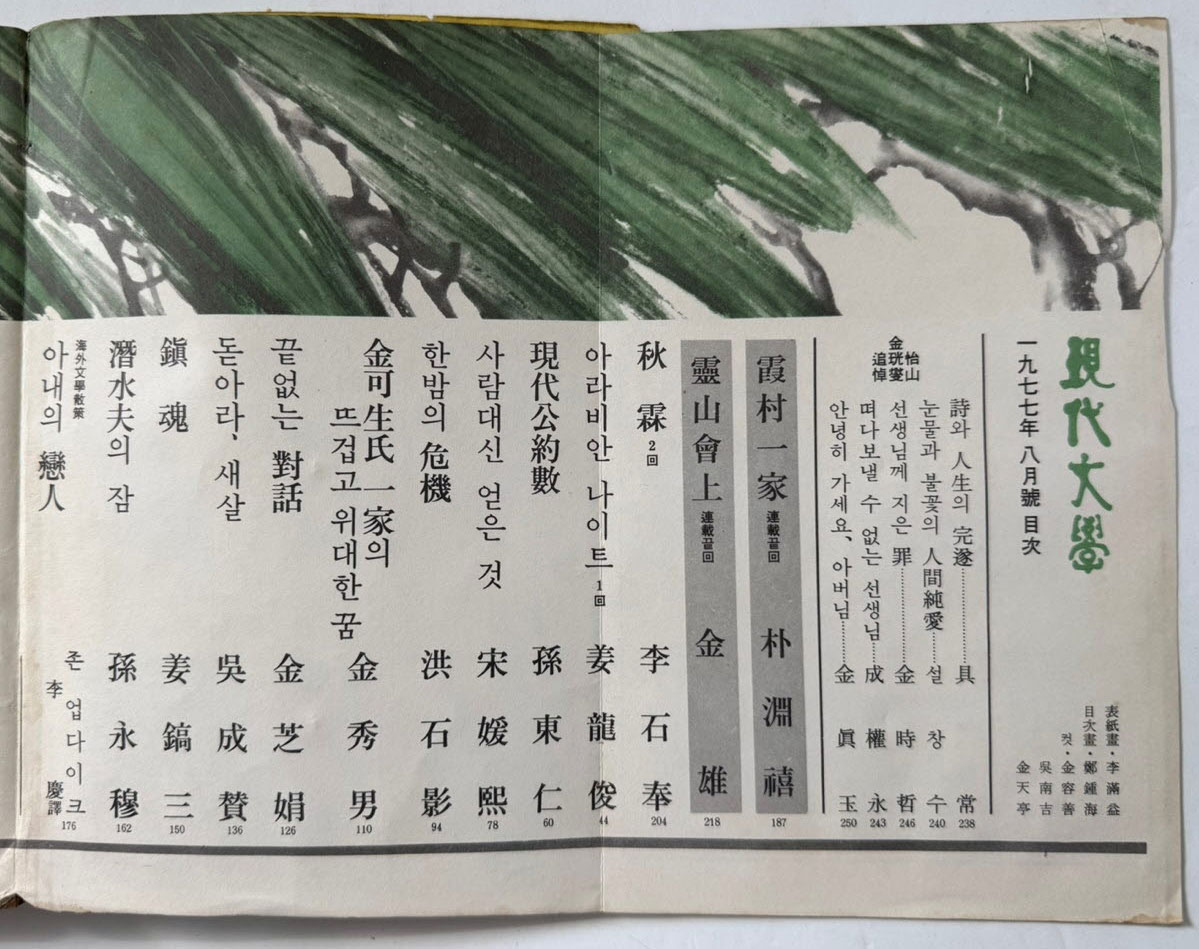 現代文學
一九七七年 八月號 目次
表紙畫・李滿益
目次畫・鄭鍾海
컷・金容善
吳南吉
金天亭
怡山
金珖燮
追悼
詩와 人生의 完遂…………具常 238
눈물과 불꽃의 人間純愛……설창수 240
선생님께 지은 罪…………金時哲 246
떠다보낼 수 없는 선생님……成權永 243
안녕히 가세요、아버님……金眞玉 250
霞村一家 連載끝回 朴淵禧 187
靈山會上 連載끝回 金雄 218
秋霖 2回 李石奉 204
아라비안 나이트 1回 姜龍俊 44
現代公約數 孫東仁 60
사람대신 얻은 것 宋媛熙 78
한밤의 危機 洪石影 94
金可生氏 一家의
뜨겁고 위대한 꿈 金秀男 110
끝없는 對話 金芝娟 126
돋아라、새살 吳成贊 136
鎭魂 姜鎬三 150
潛水夫의 잠 孫永穆 162
海外文學散策
아내의 戀人 존 업다이크
李慶譯 176